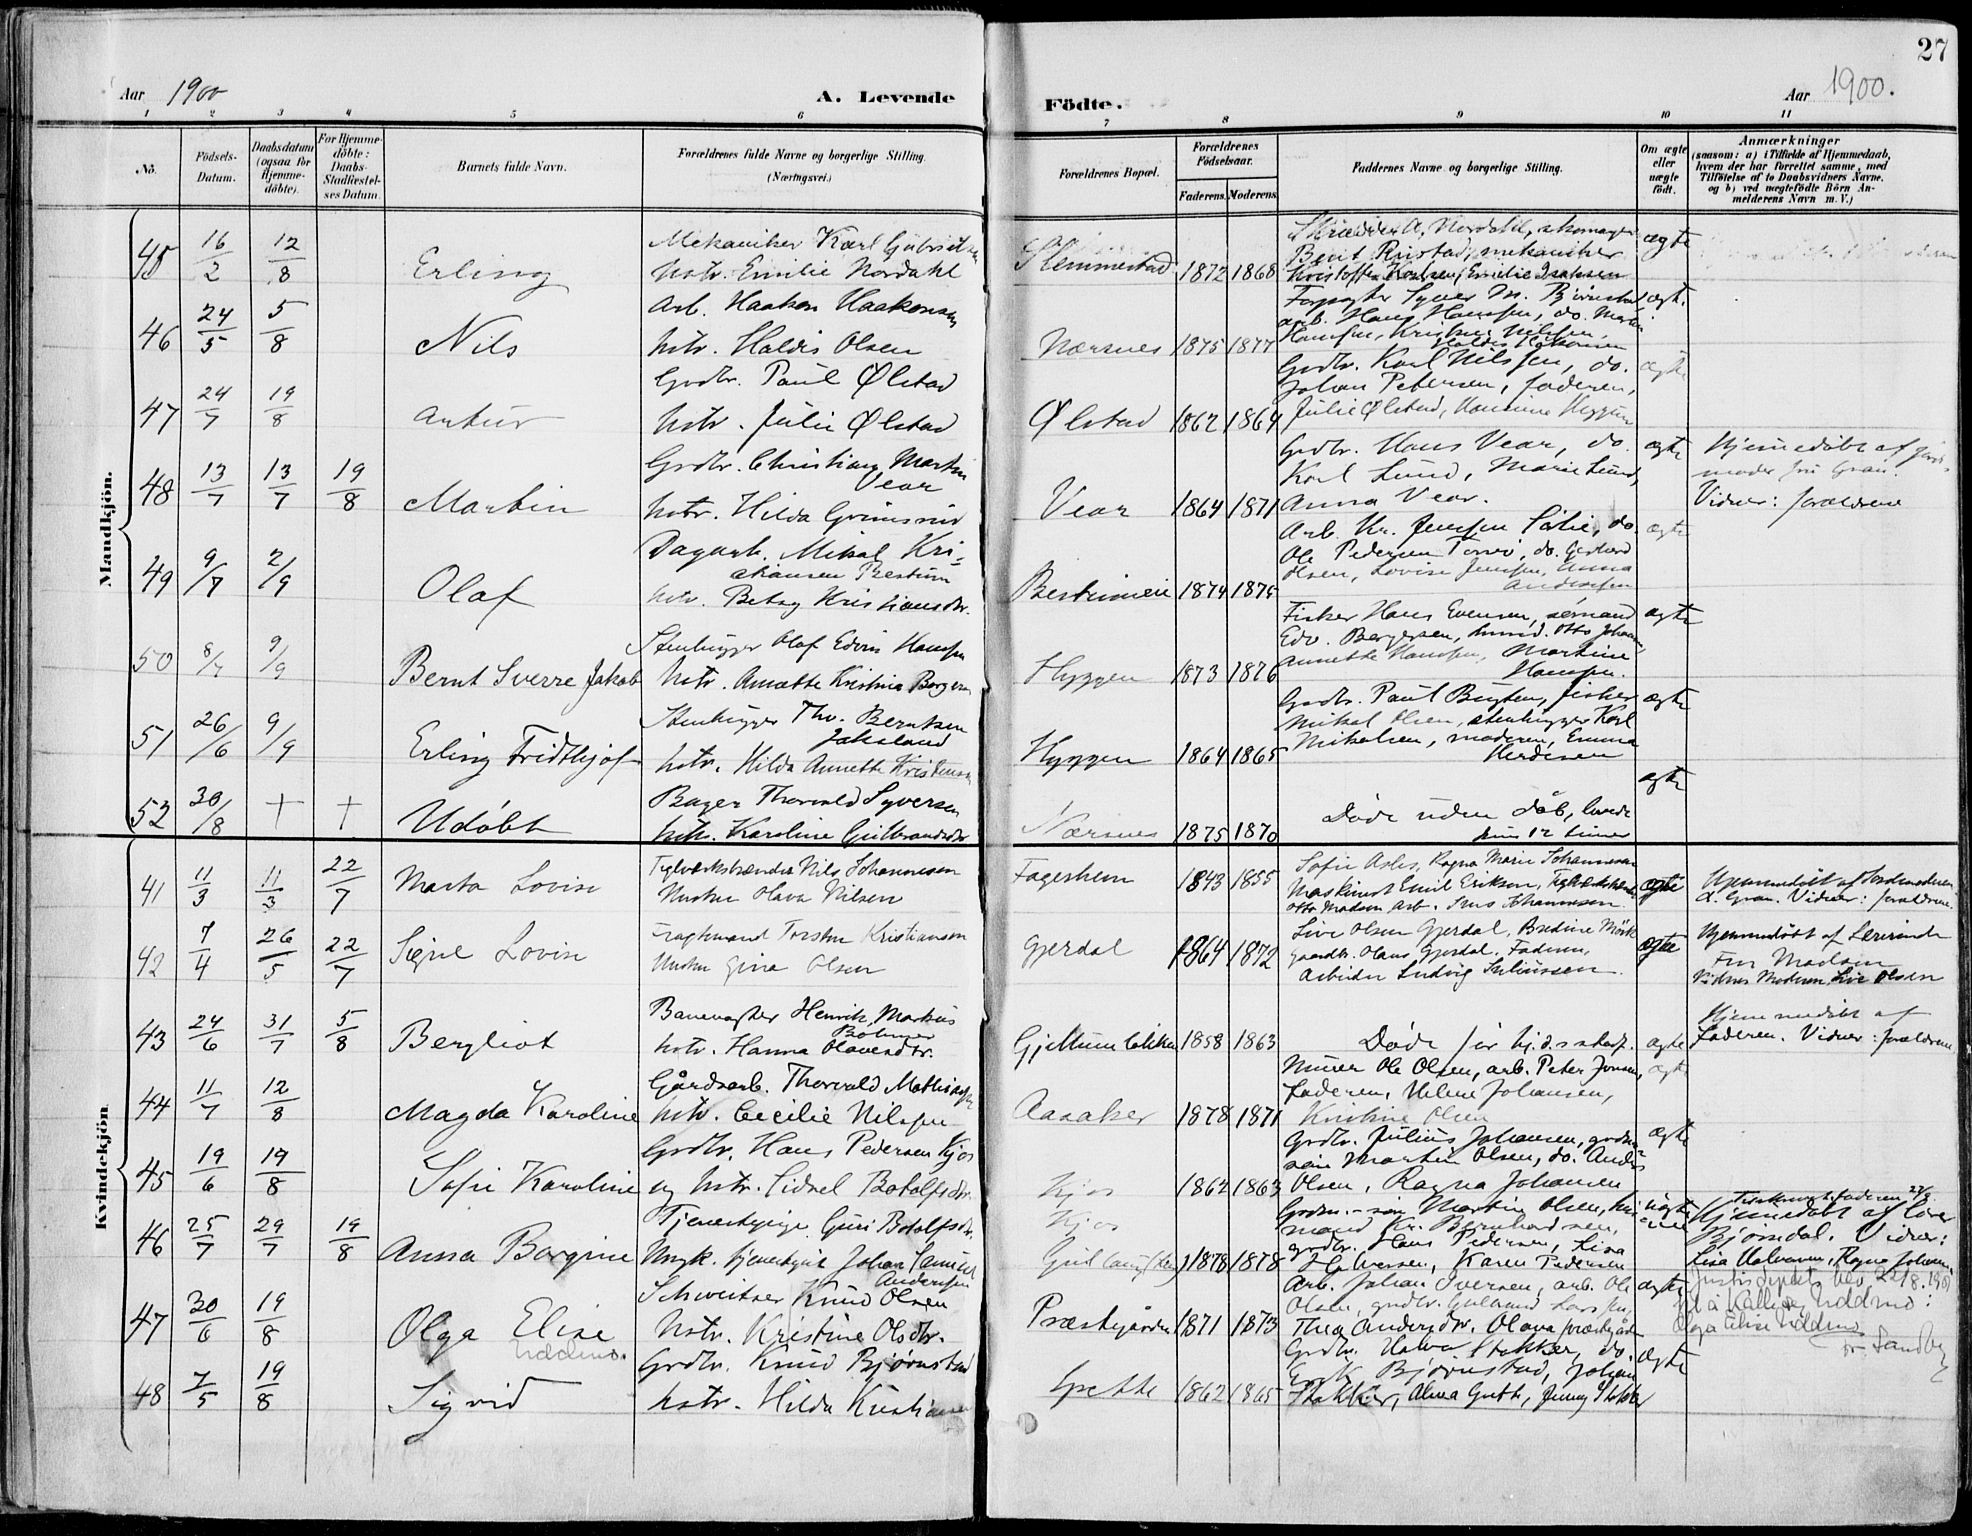 27
Aar 1900
A. Levende
Födte.
Aar 1900.
1 2 3 4 5 6 7 8 9 10 11
No.
Födsels-
Datum.
Daabsdatum
(ogsaa for
Hjemme-
döbte).
For Hjemme-
döbte:
Daabs-
Stadfæstel-
ses Datum
Barnets fulde Navn.
Forældrenes fulde Navne og borgerlige Stilling.
(Næringsvei.)
Forældrenes Bopæl.
Forældrenes
Födselsaar.
Faderens. Moderens.
Faddernes Navne og borgerlige Stilling.
Om ægte
eller
uægte
födt.
Anmærkninger
(saasom: a) i Tilfælde af Hjemmedaab,
hvem der har forrettet samme, med
Tilföielse af to Daabsvidners Navne.
og b) ved uægtefödte Börn An-
melderens Navn m. V.)
Mandkjön.
45 16/2 12/8 Erling
Mekaniker Karl Gabrielsen
hstr. Emilie Nordahl
Slemmestad 1872 1868
Skrædder A. Nordahl, skomager
Berit Ristad, mekaniker
Kristoffer Karlsen, Emilie Isaksen
ægte
46 24/5 5/8 Nils
Arb. Haakon Haakonsen
hstr. Haldis Olsen
Nærsnes 1875 1877
Forpagter Syver M. Bjørnstad
arb. Hans Hansen, do. Martin
Hansen, Kristine Nilsen
Haldis Hakonsen
ægte.
47 24/7 19/8 Artur
Grdbr. Paul Ølstad
hstr. Julie Ølstad
Ølstad 1862 1864
Grdbr. Karl Nilssen, do.
Johan Petersen, faderen,
Julie Ølstad, Hyggen
ægte
48 13/7 13/7 19/8 Martin
Grdbr. Christian Martin
Vear
hstr. Hilda Grimsrud
Vear 1864 1871
Grdbr. Hans Vear, do.
Karl Lund, Marie Lund,
Anna Vear.
ægte
Hjemmedøbt af jord-
moder fru Gran.
Vidner: forældrene
49 9/7 2/9 Olaf
Dagarb. Mikal Kri-
stiansen Bestum
hstr. Betzy Kristiansdtr.
1874 1875
Arb. Kr. Jensen do.
Ole Pedersen do. Gerhard
Olsen, Lovise Jensen, Anna
Andersen
ægte
50 8/7 9/9 Bernt Sverre Jakob
Stenhugger Olaf Edvin Hansen
hstr. Annette Kristine Borgersen
Hyggen 1873 1876
Fisker Hans Evensen, sømand
Edv. Borgersen, Otto Johansen
Annette Hansen, Martine
Hansen.
ægte
51 26/6 9/9 Erling Fridthjof
Stenhugger Thv. Berntsen
Jaksland
hstr. Hilda Annette Kristensen
Hyggen 1864 1865
Grdbr. Paul fisker
Mikal Olsen, stenhugger Karl
Mikalsen, moderen, Emma
ægte
52 30/8 † † Udøbt
Bager Thorvald Syversen
hstr. Karoline Gulbrandsdtr
Nærsnes 1875 1870
Døde uden dåb, levede
kun 12 timer
ægte
Kvindekjön.
41 11/3 11/3 22/7 Marta Lovise
Teglværksbrænder Nils Johannesen
Hustru Olava Nilsen
Fagerhem 1843 1855
Sofie Aslo, Ragna Marie Johannesen
Maskinist Emil Eriksen,
Otto Madsen Arb. Jens Johannesen
ægte
Hjemmedøbt af Jordmoderen
L. Gran. Vidner: forældrene.
42 7/4 26/5 22/7 Signe Lovise
Fragtmand Torsten Kristiansen
Hustru Gina Olsen
Gjerdal 1864 1872
Live Olsen Gjerdal, Bredine Mørk
Gaardbr. Olaus Gjerdal, Faderen,
Arbeider Ludvig Juliussen.
ægte
Hjemmedøbt af Lærerinde
Frk Madsen
Vidner Moderen, Live Olsen
43 24/6 31/7 5/8 Bergliot
Banevogter Henrik Markus
Böhmer
hstr. Hanna Olavesdtr.
1858 1863
Døde før hj. d. s stadf.
ægte
Hjemmedøbt af
Faderen. Vidner: forældrene
44 11/7 12/8 Magda Karoline
Gårdsarb. Thorvald Mathisen
hstr. Cecilie Nilssen
Aasaker 1878 1871
Murer Ole Olsen, arb. Peter Jonsen,
Faderen, Helene Johansen,
Kristine Olsen
ægte
45 19/6 19/8 Sofie Karoline
Grdbr. Hans Pedersen Kjos
og hstr. Sidsel Botolfsdtr.
Kjos 1862 1863
Grdbr. Julius Johansen, grdm-
søn Martin Olsen, do. Anders
Olsen, Ragna Johansen
ægte
46 25/7 29/7 19/8 Anna Borgine
Tjenestepige Guri Botolfsdtr.
Ungk. tjenestegut Johan Samuel
Andersen
Kjos
1878 1878
Grdm.-søn Martin Olsen,
Kr. Bernhardsen,
grdbr. Hans Pedersen, Lisa
Halvorsen, Karen Pedersen
uægte
Hjemmedøbt af Lærer
Bjørndal. Vidner:
Lisa Halvorsen, Ragna Johansen.
47 30/6 19/8 Olga Elise
Uddmo.
Schweitser Knud Olsen
hstr. Kristine Olsdtr.
Præstegården 1871 1873
Arb. Johan Iversen, arb. Ole
Olsen, grdbr. Gulbrand Larsen,
Thea Andersdtr. Olava præstegård
ægte
Justisdeptets bev. 22/8. 1951
til å kalle seg Uddmo:
Olga Elise Uddmo
Sandby
48 7/5 19/8 Sigrid
Grdbr. Knud Bjørnstad
hstr. Hilda Kristiansen
Grette 1862 1865
Grdbr. Halvor Stokker, do.
Bjørnstad, Johan
Stokker, Alma Grette, Jenny Stokker
ægte